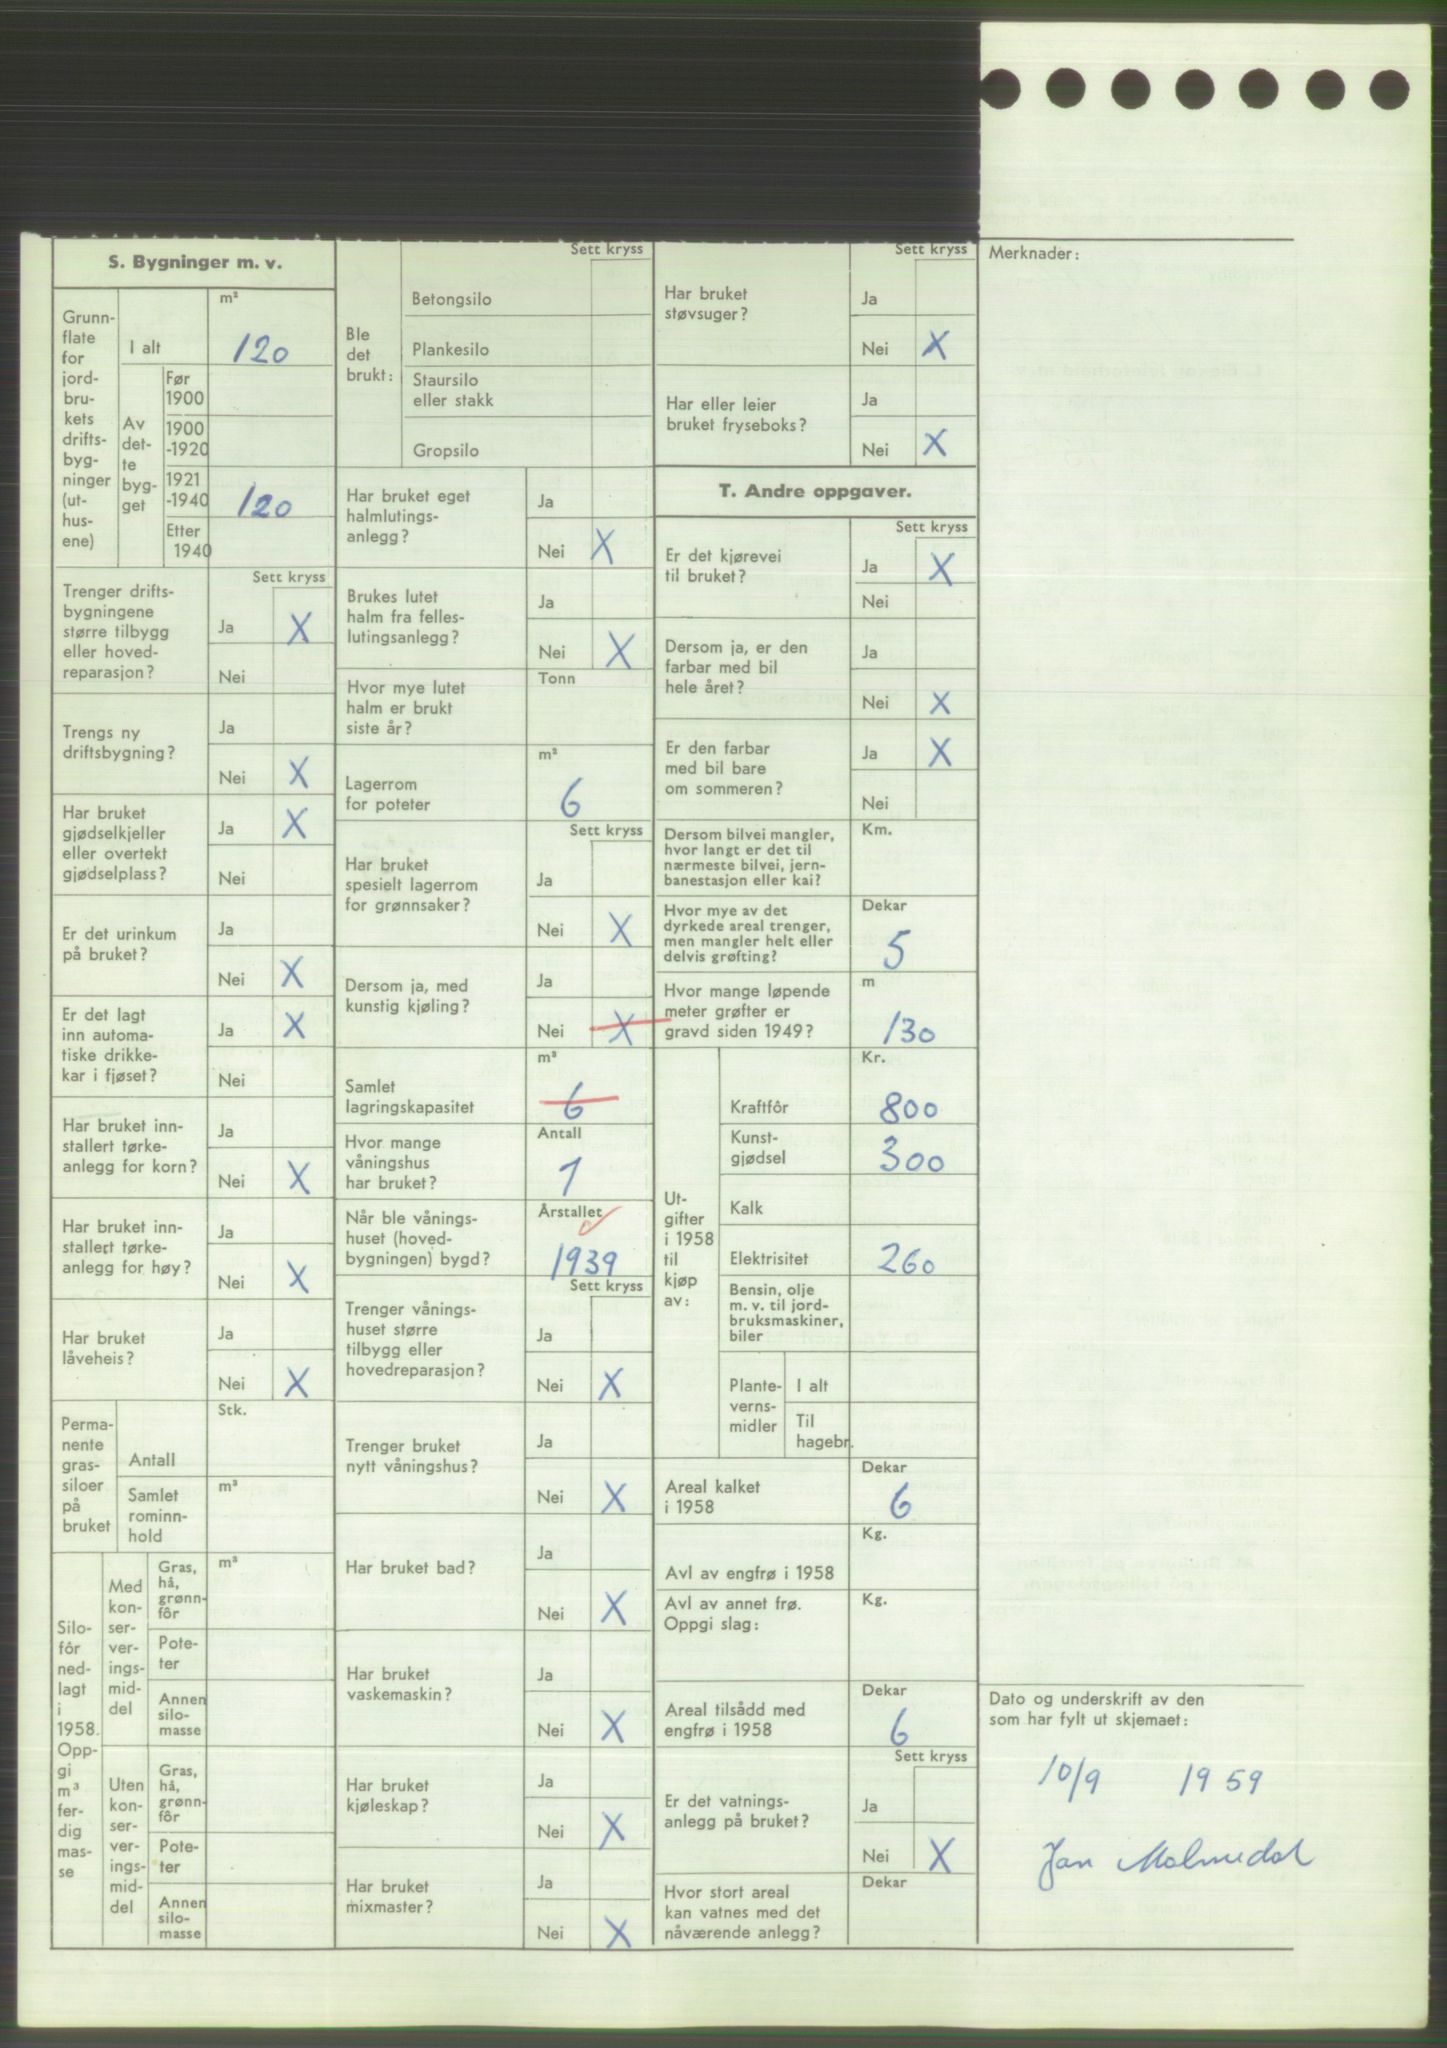 S. Bygninger m. v.
Grunn-
flate
for
jord-
bru-
kets
drifts-
byg-
ninger
(ut-
hus-
ene)
m²
I alt
120
Av
det-
te
byg-
get
Før
1900
1900
-1920
1921
-1940
120
Etter
1940
Sett kryss
Trenger drifts-
bygningene
større tilbygg
eller hoved-
reparasjon?
Ja X
Nei
Trengs ny
driftsbygning?
Ja
Nei X
Har bruket
gjødselkjeller
eller overtekt
gjødselplass?
Ja X
Nei
Er det urinkum
på bruket?
Ja
Nei X
Er det lagt
inn automa-
tiske drikke-
kar i fjøset?
Ja X
Nei
Har bruket inn-
stallert tørke-
anlegg for korn?
Ja
Nei X
Har bruket inn-
stallert tørke-
anlegg for høy?
Ja
Nei X
Har bruket
låveheis?
Ja
Nei X
Perma-
nente
gras-
siloer
på
bruket
Stk.
Antall
m³
Samlet
rominn-
hold
Silo-
fôr
ned-
lagt
i
1958.
Opp-
gi
m³
fer-
dig
mas-
se
Med
kon-
ser-
ver-
ings-
mid-
del
m³
Gras,
hå,
grønn-
fôr
Pote-
ter
Annen
silo-
masse
Uten
kon-
ser-
ver-
ings-
mid-
del
Gras,
hå,
grønn-
fôr
Pote-
ter
Annen
silo-
masse
Sett kryss
Ble
det
brukt:
Betongsilo
Plankesilo
Staursilo
eller stakk
Gropsilo
Har bruket eget
halmlutings-
anlegg?
Ja
Nei X
Brukes lutet
halm fra felles-
lutingsanlegg?
Ja
Nei X
Hvor mye lutet
halm er brukt
siste år?
Tonn
Lagerrom
for poteter
m³
6
Sett kryss
Har bruket
spesielt lagerrom
for grønnsaker?
Ja
Nei X
Dersom ja, med
kunstig kjøling?
Ja
Nei X
Samlet
lagringskapasitet
m³
6
Hvor mange
våningshus
har bruket?
Antall
1
Når ble vånings-
huset (hoved-
bygningen) bygd?
Årstallet
1939
Sett kryss
Trenger vånings-
huset større
tilbygg eller
hovedreparasjon?
Ja
Nei X
Trenger bruket
nytt våningshus?
Ja
Nei X
Har bruket bad?
Ja
Nei X
Har bruket
vaskemaskin?
Ja
Nei X
Har bruket
kjøleskap?
Ja
Nei X
Har bruket
mixmaster?
Ja
Nei X
Sett kryss
Har bruket
støvsuger?
Ja
Nei X
Har eller leier
bruket fryseboks?
Ja
Nei X
T. Andre oppgaver.
Sett kryss
Er det kjørevei
til bruket?
Ja X
Nei
Dersom ja, er den
farbar med bil
hele året?
Ja
Nei X
Er den farbar
med bil bare
om sommeren?
Ja X
Nei
Dersom bilvei mangler,
hvor langt er det til
nærmeste bilvei, jern-
banestasjon eller kai?
Km.
Hvor mye av det
dyrkede areal trenger,
men mangler helt eller
delvis grøfting?
Dekar
5
Hvor mange løpende
meter grøfter er
gravd siden 1949?
m
130
Ut-
gifter
i 1958
til
kjøp
av:
Kr.
Kraftfôr
800
Kunst-
gjødsel
300
Kalk
Elektrisitet
260
Bensin, olje
m. v. til jord-
bruksmaskiner,
biler
Plante-
verns-
midler
I alt
Til
hagebr.
Areal kalket
i 1958
Dekar
6
Avl av engfrø i 1958
Kg.
Avl av annet frø.
Oppgi slag:
Kg.
Areal tilsådd med
engfrø i 1958
Dekar
6
Sett kryss
Er det vatnings-
anlegg på bruket?
Ja
Nei X
Hvor stort areal
kan vatnes med det
nåværende anlegg?
Dekar
Merknader:
Dato og underskrift av den
som har fylt ut skjemaet:
10/9 1959
Jan Malmedal